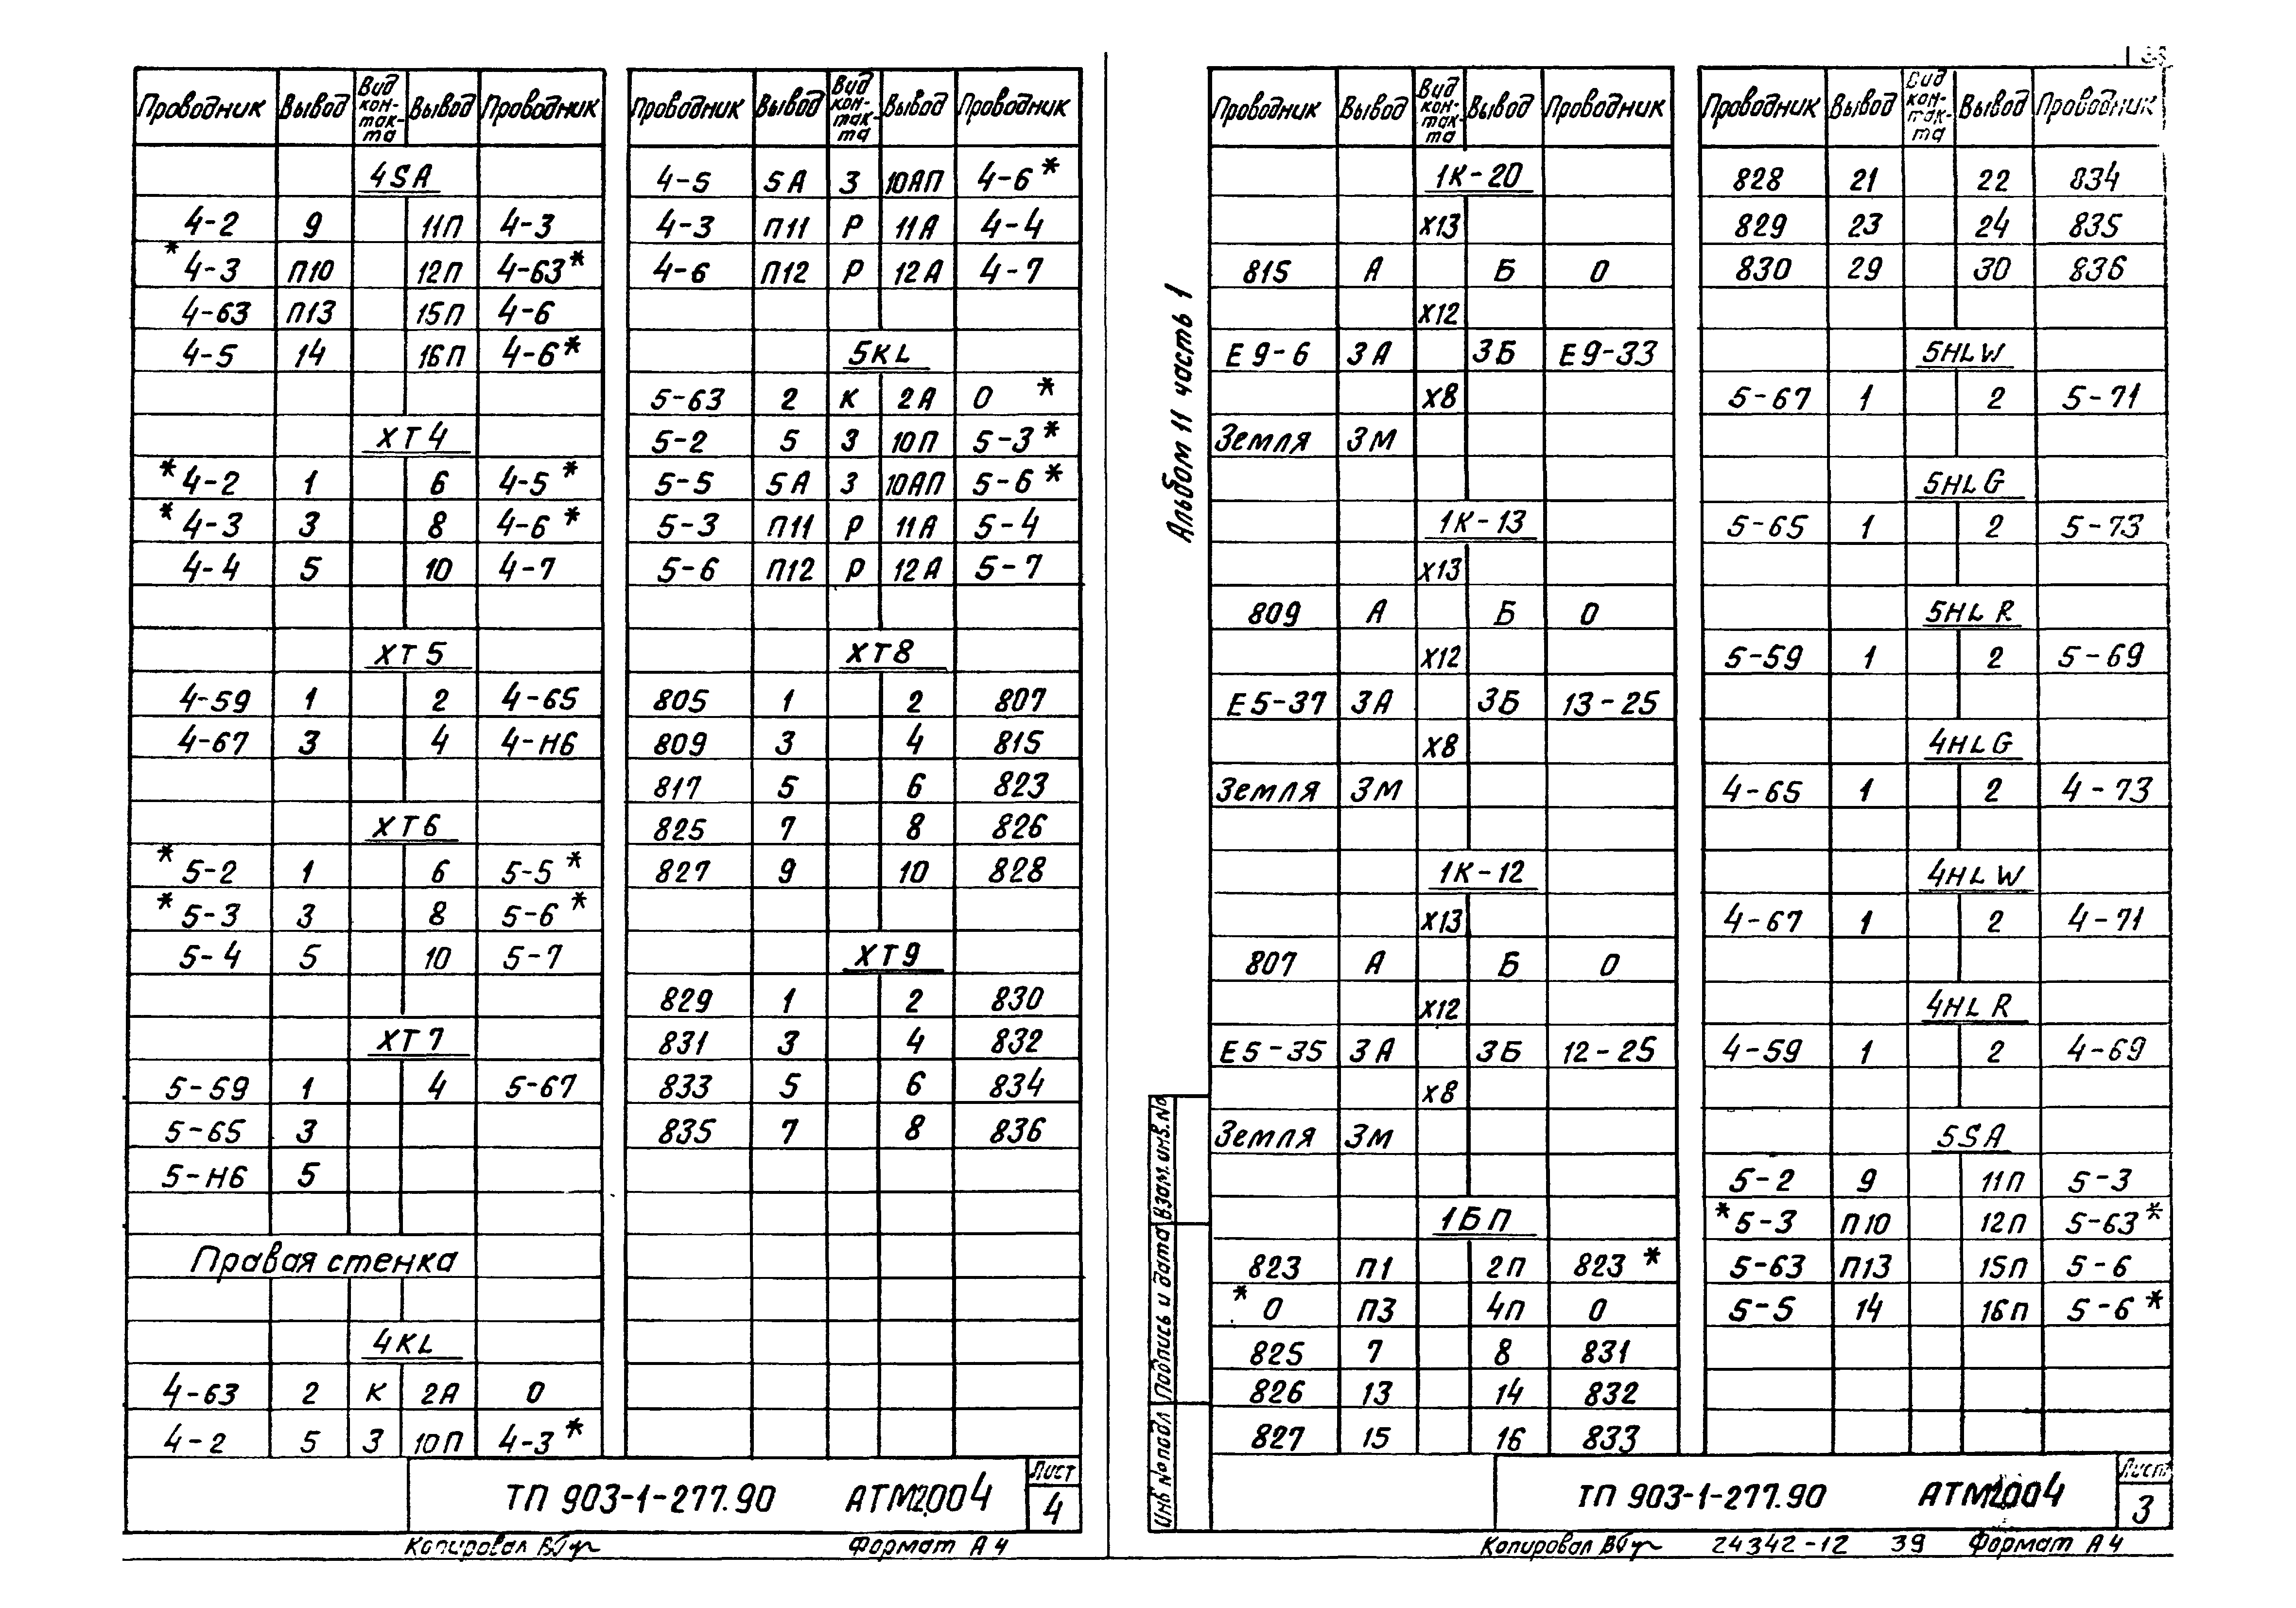 Проводник Вывод Вид кон-так-та Вывод Проводник
4SA
4-2 9 11П 4-3
*4-3 П10 12П 4-63*
4-63 П13 15П 4-6
4-5 14 16П 4-6*
XT4
*4-2 1 6 4-5*
*4-3 3 8 4-6*
4-4 5 10 4-7
XT5
4-59 1 2 4-65
4-67 3 4 4-Н6
XT6
*5-2 1 6 5-5*
*5-3 3 8 5-6*
5-4 5 10 5-7
XT7
5-59 1 4 5-67
5-65 3
5-Н6 5
Правая стенка
4KL
4-63 2 К 2А 0
4-2 5 З 10П 4-3*
Проводник Вывод Вид кон-так-та Вывод Проводник
4-5 5А З 10АП 4-6*
4-3 П11 Р 11А 4-4
4-6 П12 Р 12А 4-7
5KL
5-63 2 К 2А 0 *
5-2 5 З 10П 5-3*
5-5 5А З 10АП 5-6*
5-3 П11 Р 11А 5-4
5-6 П12 Р 12А 5-7
XT8
805 1 2 807
809 3 4 815
817 5 6 823
825 7 8 826
827 9 10 828
XT9
829 1 2 830
831 3 4 832
833 5 6 834
835 7 8 836
ТП 903-1-277.90 АТМ2.004
Лист
4
Копировал
Формат А4
Альбом 11 часть 1
Проводник Вывод Вид кон-так-та Вывод Проводник
1К-20
X13
815 А Б 0
X12
Е9-6 3А 3Б Е9-33
X8
Земля 3М
1К-13
X13
809 А Б 0
X12
Е5-37 3А 3Б 13-25
X8
Земля 3М
1К-12
X13
807 А Б 0
X12
Е5-35 3А 3Б 12-25
X8
Земля 3М
1БП
823 П1 2П 823 *
*0 П3 4П 0
825 7 8 831
826 13 14 832
827 15 16 833
Проводник Вывод Вид кон-так-та Вывод Проводник
828 21 22 834
829 23 24 835
830 29 30 836
5HLW
5-67 1 2 5-71
5HLG
5-65 1 2 5-73
5HLR
5-59 1 2 5-69
4HLG
4-65 1 2 4-73
4HLW
4-67 1 2 4-71
4HLR
4-59 1 2 4-69
5SA
5-2 9 11П 5-3
*5-3 П10 12П 5-63*
5-63 П13 15П 5-6
5-5 14 16П 5-6*
Взам. инв. №
Подпись и дата
Инв № подл
ТП 903-1-277.90 АТМ2.004
Лист
3
Копировал
24342-12 39 Формат А4